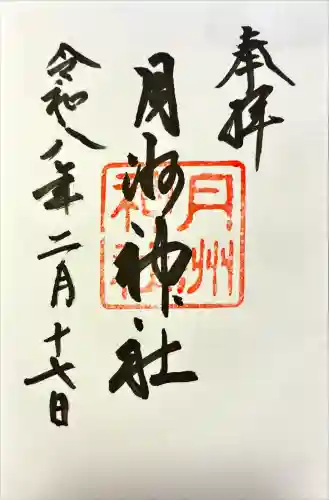 奉拝
月洲神社
月州
神社
令和八年二月十七日